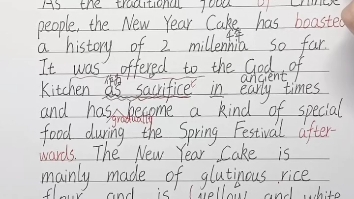 As the traditional food of Chinese
people, the New Year Cake has boasted
a history of 2 millennia so far.
千年
It was offered to the God of
ancient
Kitchen as sacrifice in early times
and has become a kind of special
gradually
food during the Spring Festival after-
wards. The New Year Cake is
mainly made of glutinous rice
flour and is (yellow and white